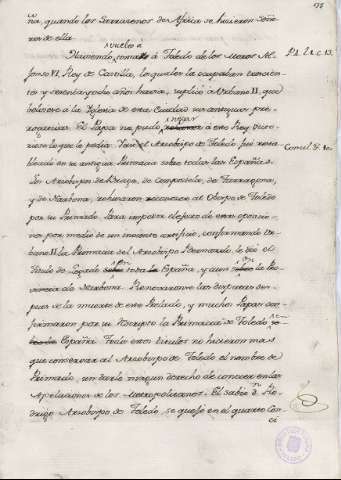 ña, quando los Sarracenos de Africa se hicieron Señores de ella.
vuelto à
Haviendo tomado à Toledo de los Moros Alfonso VI. Rey de Castilla, los quales la ocupaban trescientos y sesenta y ocho años havia, suplicó à Urbano II. que
bolviese à la Iglesia de esta Ciudad sus antiguas prerrogativas. El Papa no pudo
negar
à este Rey victorioso lo que le pedia. Y así el Arzobispo de Toledo fué restablecido en su antigua Primacia sobre todas las Españas.
Los Arzobispos de Braga, de Compostela, de Tarragona,
y de Narbona, rehusaron reconocer al Obispo de Toledo
por su Primado. Para impedir el efecto de esta oposicion por medio de un inocente artificio, confirmando Urbano II. la Primacia del Arzobispo Bernardo, le dió el
titulo de Legado sobre toda la España, y aun sobre la Provincia de Narbona. Renovaronse las disputas despues de la muerte de este Prelado, y muchos Papas confirmaron por su Rescripto la Primacia de Toledo
España. Todos estos titulos no hicieron mas
que conservar al Arzobispo de Toledo el nombre de
Primado, sin darle ningun derecho de conocer en las
Apelaciones de los Metropolitanos. El sabio Dn. Rodrigo Arzobispo de Toledo, se quejó en el quarto Conci